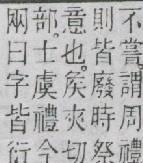 不嘗謂周禮
則皆廢時祭
意也矦夾切
部曰士虞禮今
兩曰字皆衍